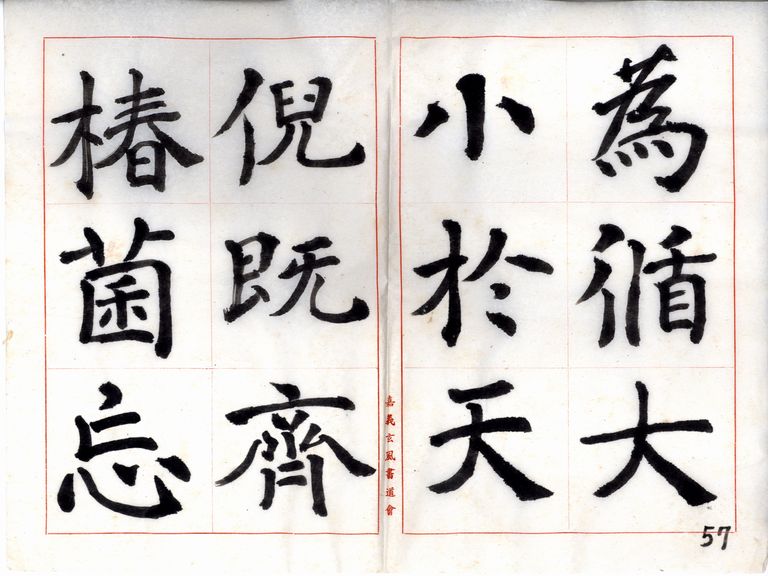 為循大
小於天
倪既齊
椿菌忘
嘉義玄風書道會
57